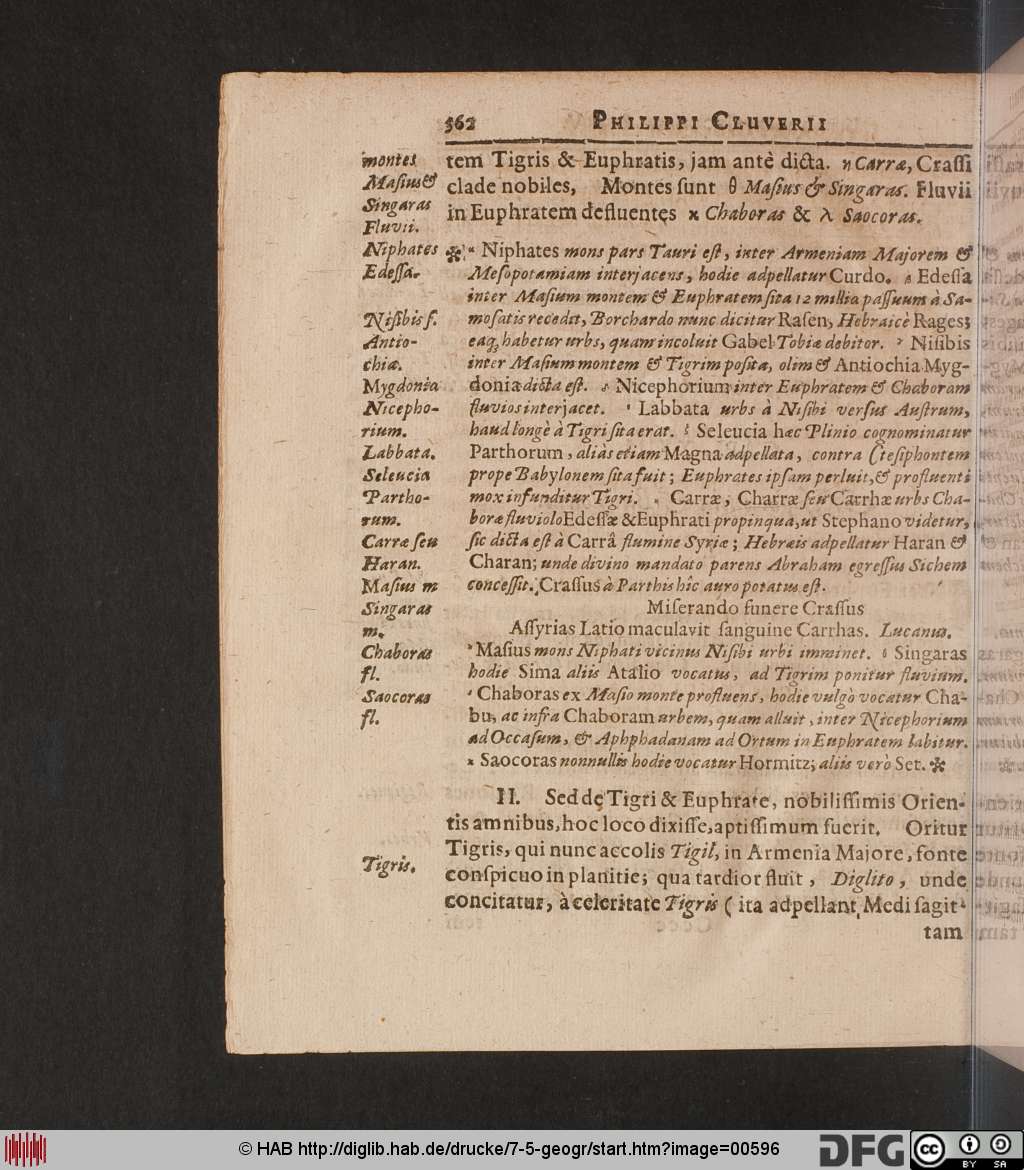 562 PHILIPPI CLUVERII
montes
Masius &
Singaras
Fluvii.
Niphates
Edessa.
Nisibis s.
Antio-
chia.
Mygdonia
Nicepho-
rium.
Labbata.
Seleucia
Partho-
rum.
Carræ seu
Haran.
Masius m
Singaras
m.
Chaboras
fl.
Saocoras
fl.
Tigris.
tem Tigris & Euphratis, jam antè dicta. η Carræ, Crassi
clade nobiles, Montes sunt θ Masius & Singaras. Fluvii
in Euphratem defluentes ϰ Chaboras & λ Saocoras.
✻ Niphates mons pars Tauri est, inter Armeniam Majorem &
Mesopotamiam interjacens, hodie adpellatur Curdo. Edessa
inter Masium montem & Euphratem sita 12 millia passuum à Sa-
mosatis recedit, Borchardo nunc dicitur Rasen, Hebraicè Rages;
eaq; habetur urbs, quam incoluit Gabel Tobiæ debitor. Nisibis
inter Masium montem & Tigrim posita, olim & Antiochia Myg-
donia dicta est. Nicephorium inter Euphratem & Chaboram
fluvios interjacet. Labbata urbs à Nisibi versus Austrum,
haud longè à Tigri sita erat. Seleucia hæc Plinio cognominatur
Parthorum, aliàs etiam Magna adpellata, contra Ctesiphontem
prope Babylonem sita fuit; Euphrates ipsam perluit, & profluenti
mox infunditur Tigri. Carræ, Charræ seu Carrhæ urbs Cha-
boræ fluviolo Edessæ & Euphrati propinqua, ut Stephano videtur,
sic dicta est à Carrâ flumine Syriæ; Hebræis adpellatur Haran &
Charan; unde divino mandato parens Abraham egressus Sichem
concessit. Crassus à Parthis hîc auro potatus est.
Miserando funere Crassus
Assyrias Latio maculavit sanguine Carrhas. Lucanus.
Masius mons Niphati vicinus Nisibi urbi imminet. Singaras
hodie Sima aliis Atalio vocatus, ad Tigrim ponitur fluvium.
Chaboras ex Masio monte profluens, hodie vulgò vocatur Cha-
bu, ac infra Chaboram urbem, quam alluit, inter Nicephorium
ad Occasum, & Aphphadanam ad Ortum in Euphratem labitur.
Saocoras nonnullis hodie vocatur Hormitz; aliis verò Set. ✻
II. Sed de Tigri & Euphrate, nobilissimis Orien-
tis amnibus, hoc loco dixisse, aptissimum fuerit. Oritur
Tigris, qui nunc accolis Tigil, in Armenia Majore, fonte
conspicuo in planitie; qua tardior fluit, Diglito, unde
concitatur, à celeritate Tigris (ita adpellant Medi sagit-
tam
© HAB http://diglib.hab.de/drucke/7-5-geogr/start.htm?image=00596
DFG
cc BY SA